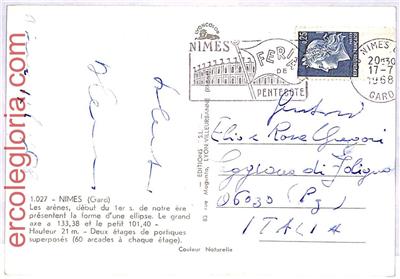 ercolegloria.com
NIMES
FERIA
DE
PENTECOTE
NIMES
20H30
17-7
1968
GARD
Gentori
Elio e Rosa Gregori
di Foligno
06030 (Pg)
ITALIA
1.027 - NIMES (Gard)
Les arènes, début du 1er s. de notre ère
présentent la forme d'une ellipse. Le grand
axe a 133,38 et le petit 101,40 -
Hauteur 21 m. - Deux étages de portiques
superposés (60 arcades à chaque étage).
EDITIONS "S.L."
83 rue Magenta, LYON-VILLEURBANNE
Couleur Naturelle